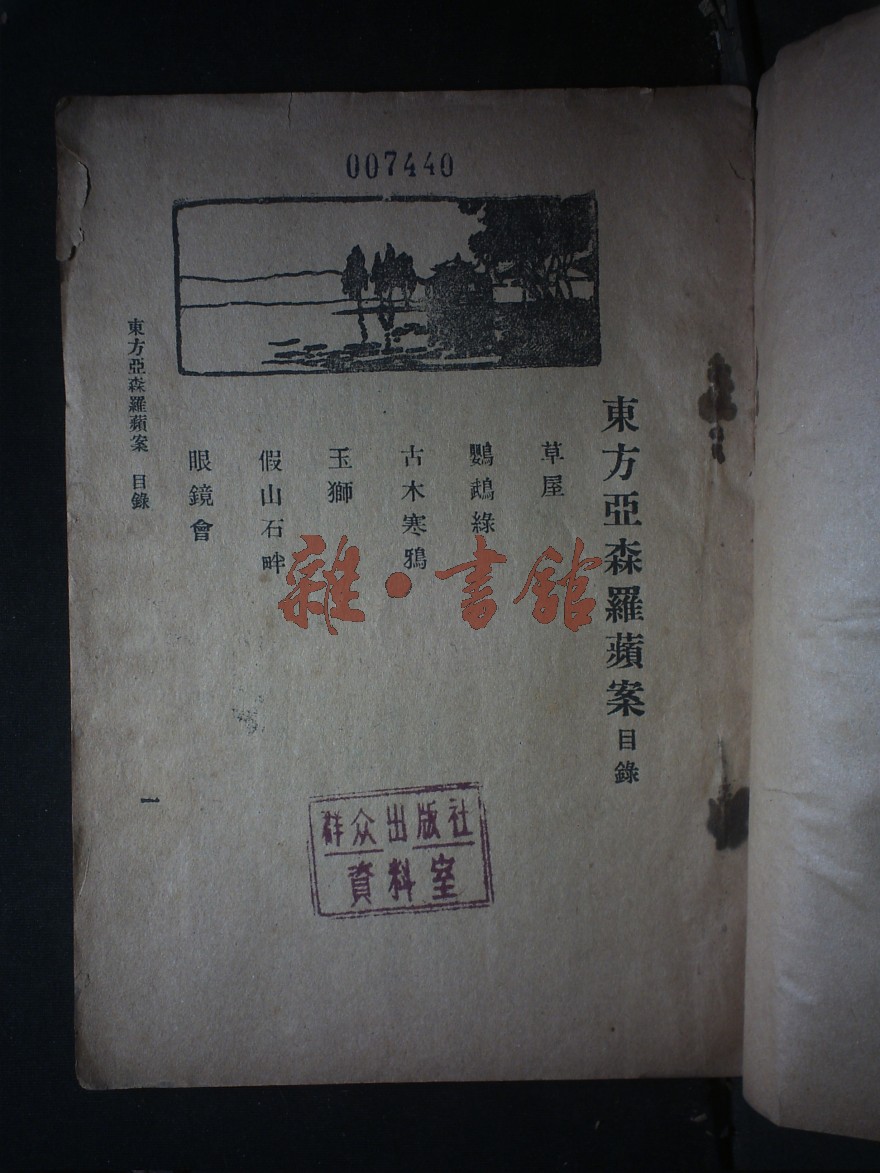 007440
東方亞森羅蘋案 目錄
草屋
鸚鵡綠
古木寒鴉
玉獅
假山石畔
眼鏡會
東方亞森羅蘋案 目錄
一
雜·書館
群众出版社
資料室